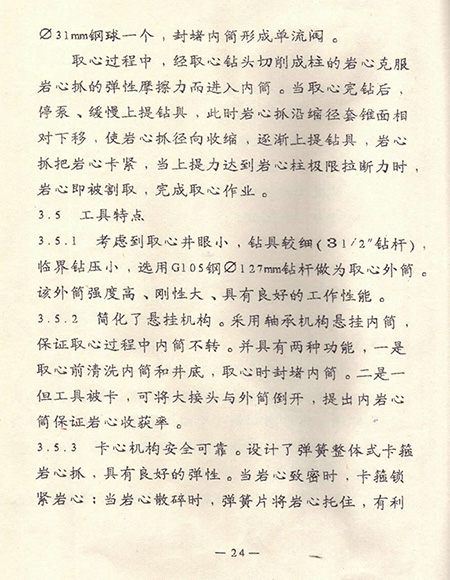 ∅31mm钢球一个，封堵内筒形成单流阀。
取心过程中，经取心钻头切削成柱的岩心克服
岩心抓的弹性摩擦力而进入内筒。当取心完钻后，
停泵、缓慢上提钻具，此时岩心抓沿缩径套锥面相
对下移，使岩心抓径向收缩，逐渐上提钻具，岩心
抓把岩心卡紧，当上提力达到岩心柱极限拉断力时，
岩心即被割取，完成取心作业。
3.5 工具特点
3.5.1 考虑到取心井眼小，钻具较细(31/2″钻杆)，
临界钻压小，选用G105钢∅127mm钻杆做为取心外筒。
该外筒强度高、刚性大、具有良好的工作性能。
3.5.2 简化了悬挂机构。采用轴承机构悬挂内筒，
保证取心过程中内筒不转。并具有两种功能，一是
取心前清洗内筒和井底，取心时封堵内筒。二是一
但工具被卡，可将大接头与外筒倒开，提出内岩心
筒保证岩心收获率。
3.5.3 卡心机构安全可靠。设计了弹簧整体式卡箍
岩心抓，具有良好的弹性。当岩心致密时，卡箍锁
紧岩心；当岩心散碎时，弹簧片将岩心托住，有利
—24—